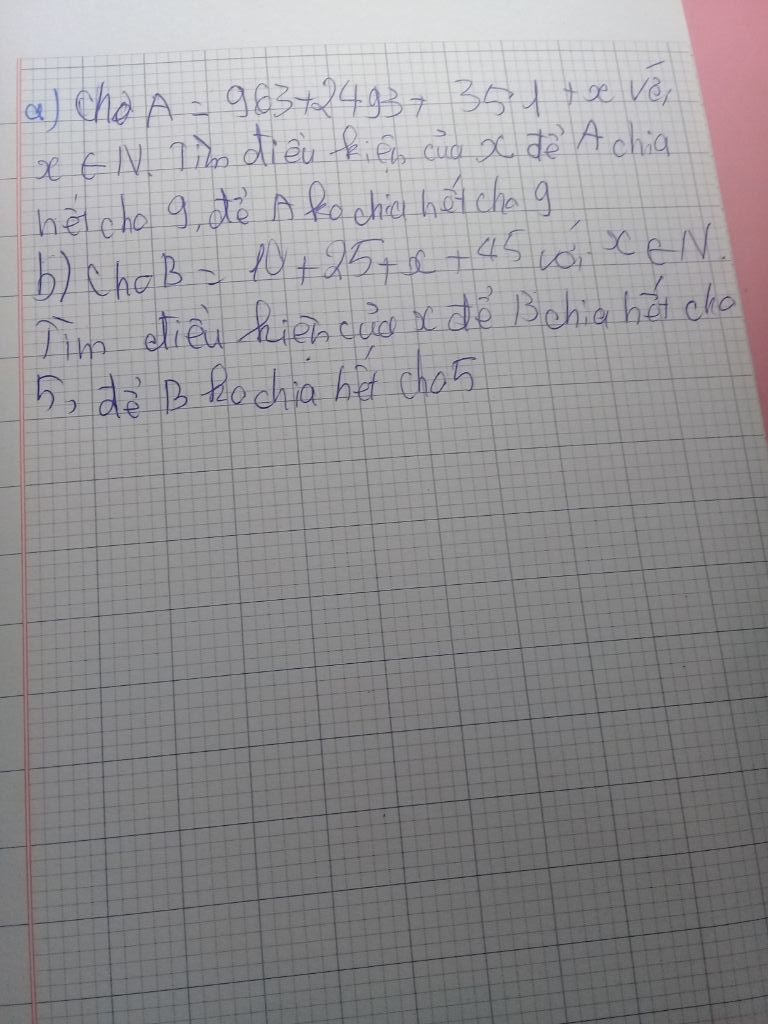 a) Cho A = 963+2493+ 351 + x với
x ∈ N. Tìm điều kiện của x để A chia
hết cho 9, để A ko chia hết cho 9
b) Cho B = 10+25+x+45 với x ∈ N.
Tìm điều kiện của x để B chia hết cho
5, để B ko chia hết cho 5